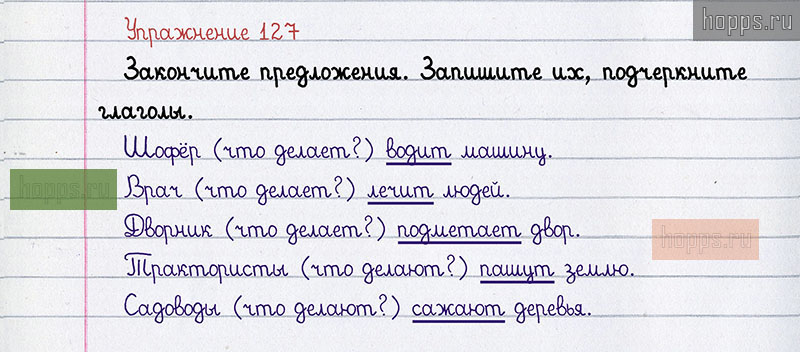 hopps.ru
Упражнение 127
Закончите предложения. Запишите их, подчеркните
глаголы.
Шофёр (что делает?) водит машину.
hopps.ru
Врач (что делает?) лечит людей.
Дворник (что делает?) подметает двор.
hopps.ru
Трактористы (что делают?) пашут землю.
Садоводы (что делают?) сажают деревья.